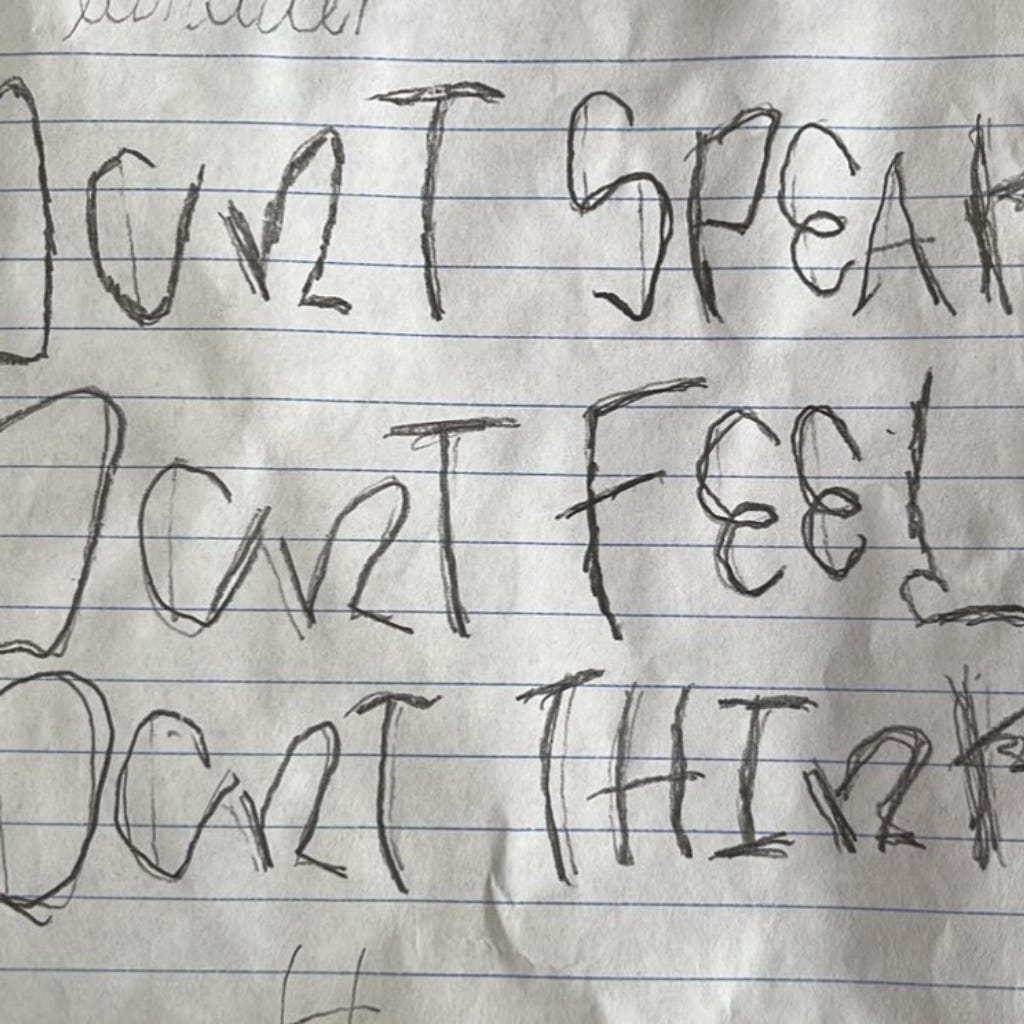 DONT SPEAK
DONT FEEL
DONT THINK